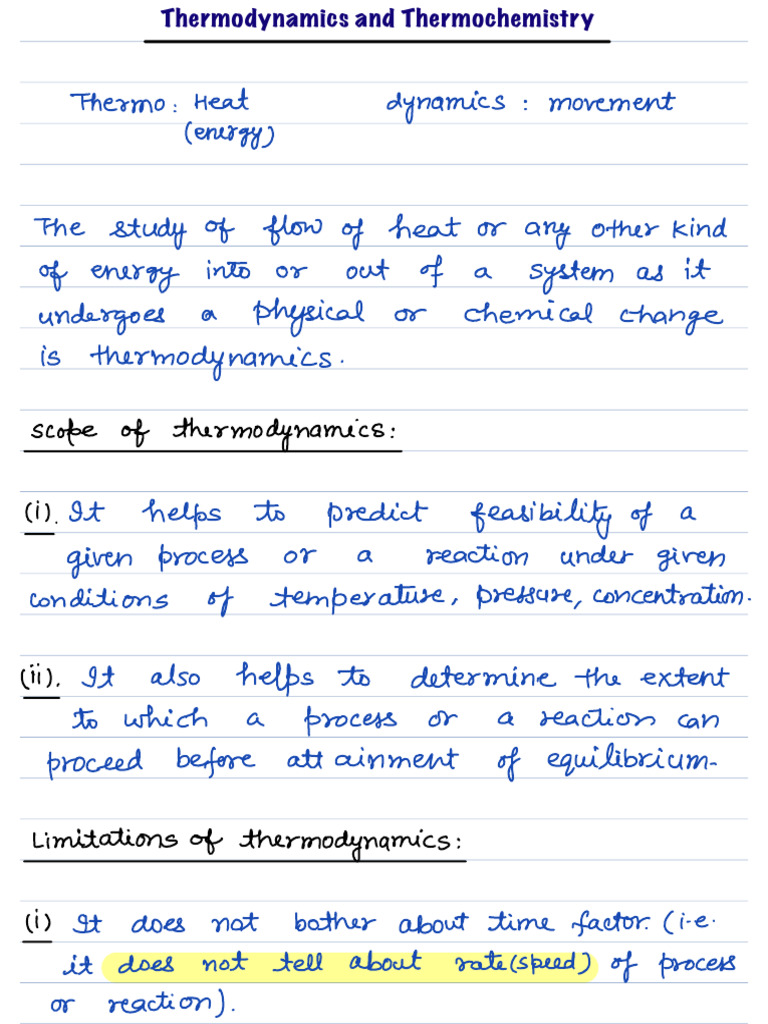 Thermodynamics and Thermochemistry
Thermo : Heat dynamics : movement
(energy)
The study of flow of heat or any other kind
of energy into or out of a system as it
undergoes a physical or chemical change
is thermodynamics.
scope of thermodynamics:
(i). It helps to predict feasibility of a
given process or a reaction under given
conditions of temperature, pressure, concentration.
(ii). It also helps to determine the extent
to which a process or a reaction can
proceed before attainment of equilibrium.
Limitations of thermodynamics:
(i) It does not bother about time factor. (i.e.
it does not tell about rate(speed) of process
or reaction).